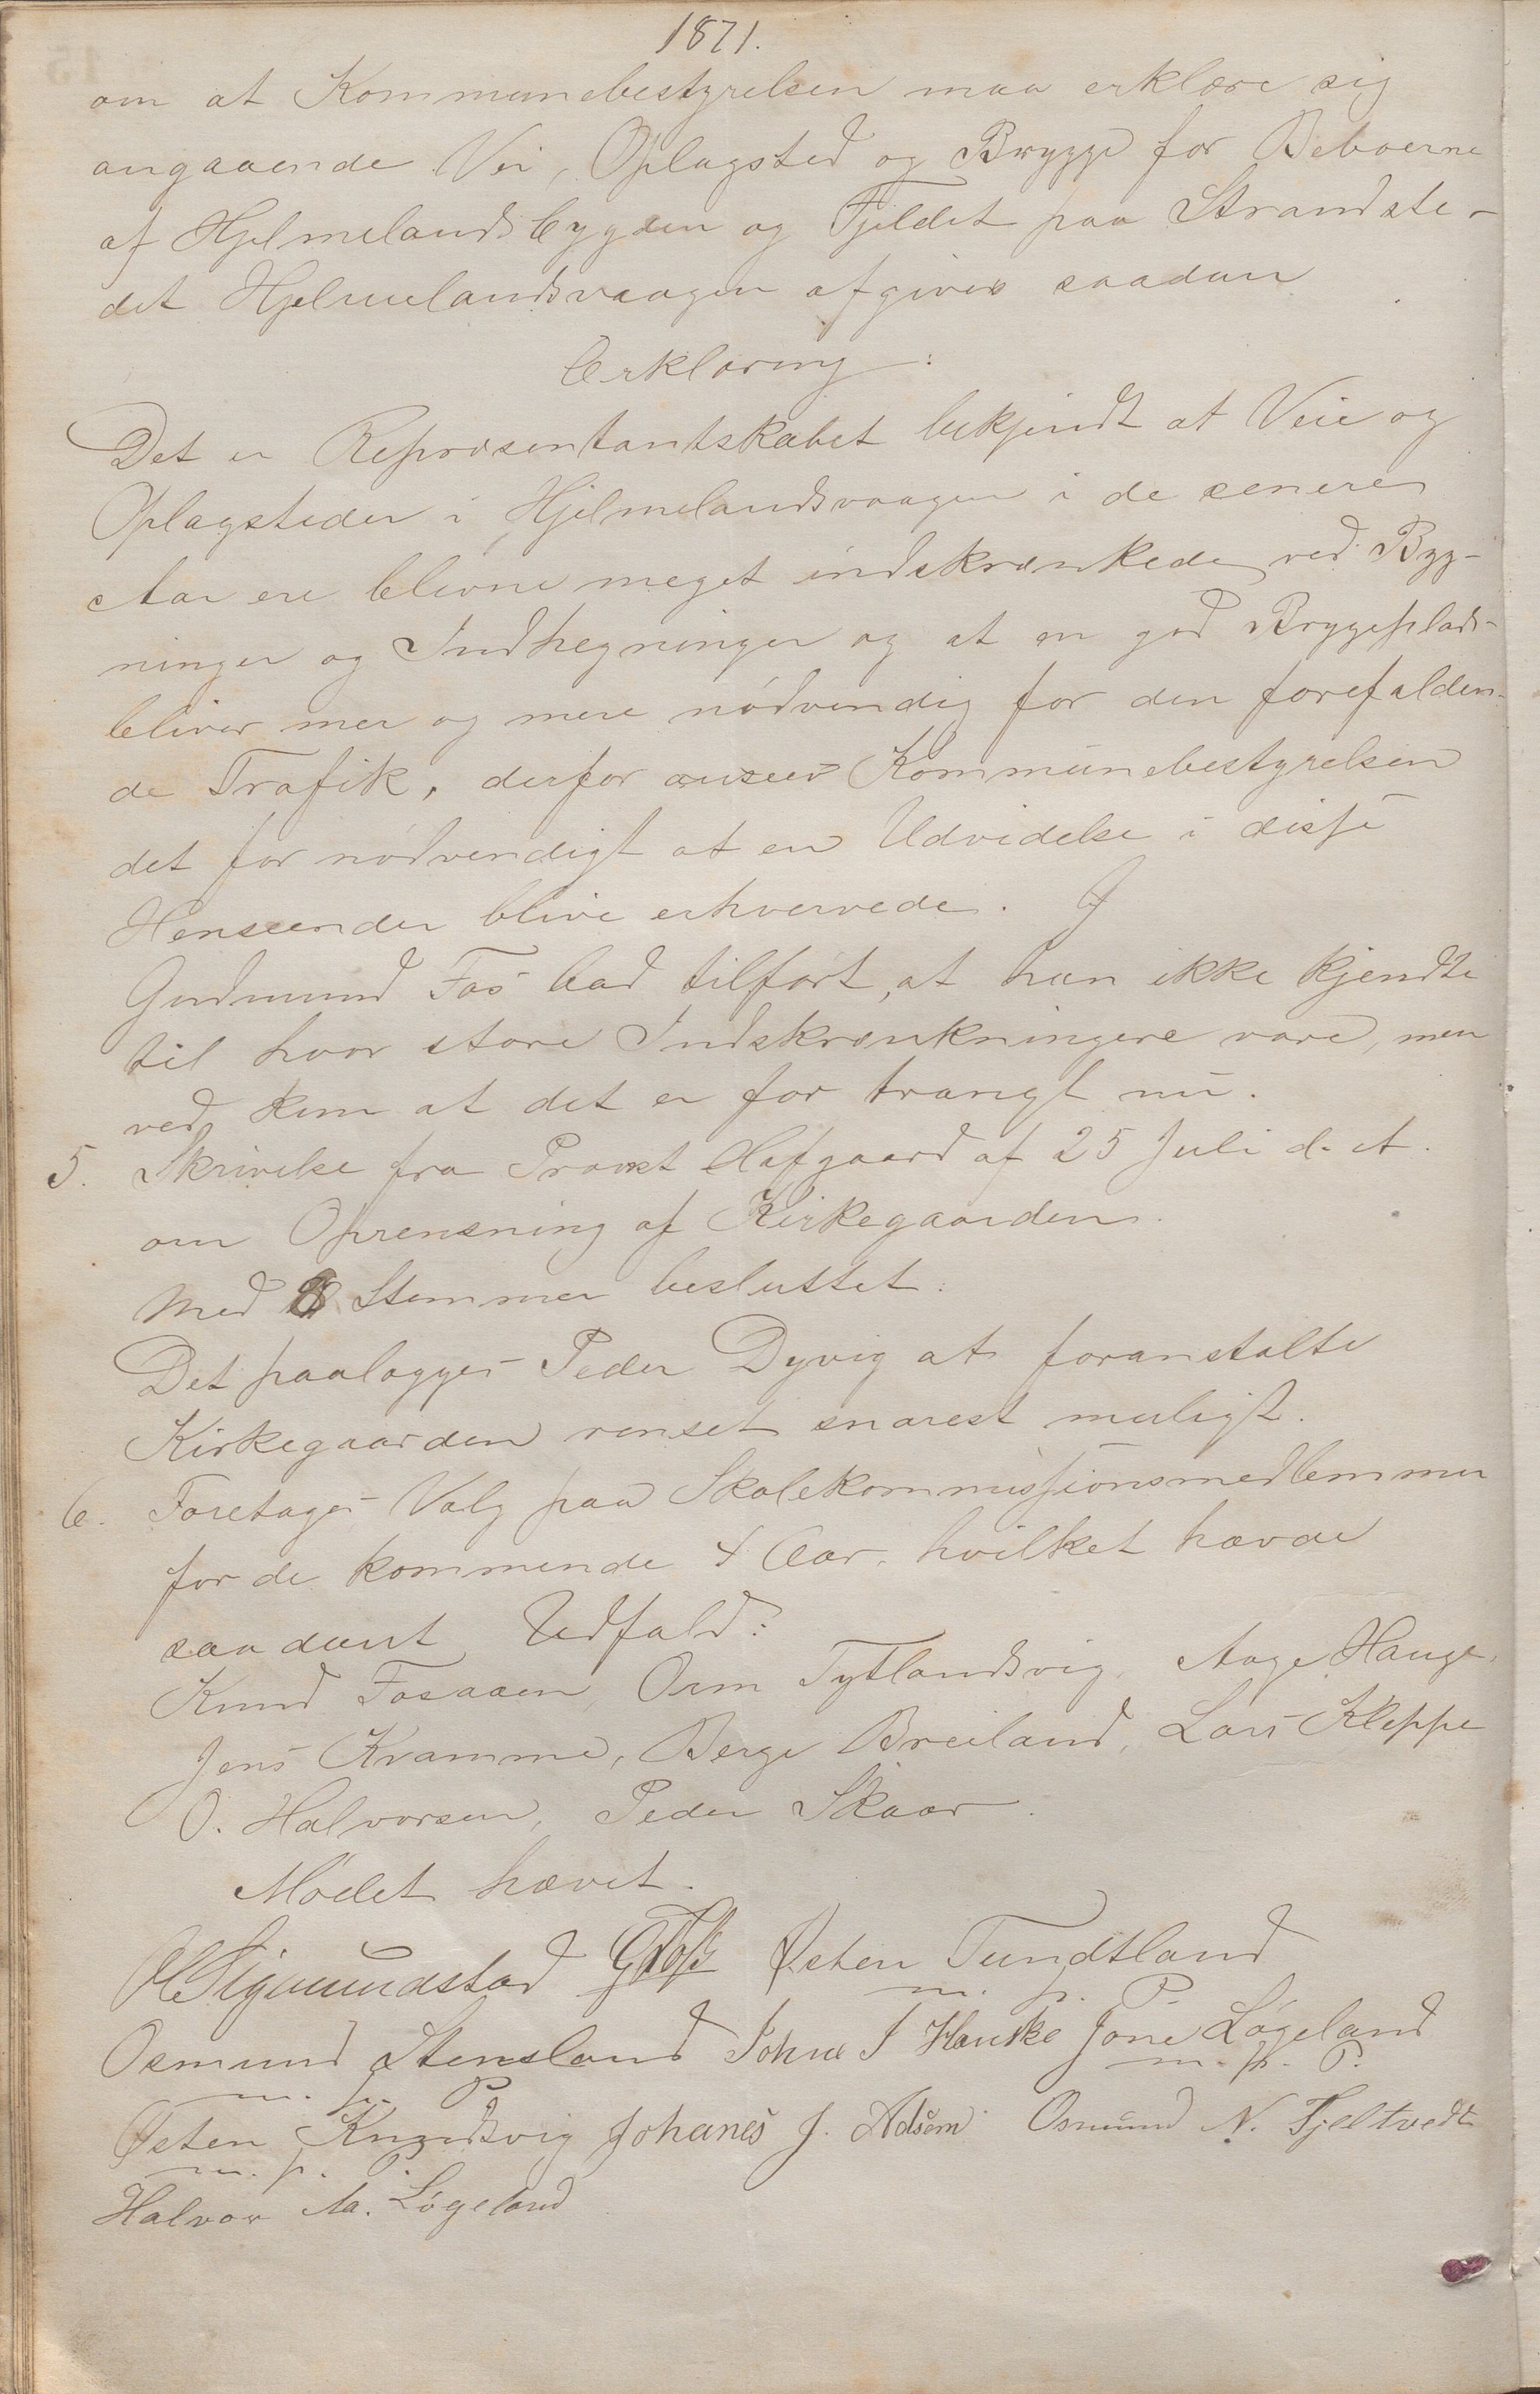 1871.
om at Kommunebestyrelsen maa erklære sig
angaaende Vei, Oplagsted og Brygge for Beboerne
af Hjelmelandsbygden og Fjeldet paa Strandste-
det Hjelmelandsvaagen afgives saadan
Erklæring:
Det er Repræsentantskabet bekjendt at Veie og
Oplagsteder i Hjelmelandsvaagen i de senere
Aar ere blevne meget indskrænkede ved Byg-
ninger og Indhegninger og at en god Bryggeplads
bliver mer og mere nödvendig for den forefalden-
de Trafik, derfor anseer Kommunebestyrelsen
det for nödvendigt at en Udvidelse i disse
Henseender blive erhvervede.
Gudmund Fos bad tilfört, at han ikke kjendte
til hvor store Indskrænkningere vare, men
ved kun at det er for trangt nu.
5. Skrivelse fra Provst Hafgaard af 25 Juli d. A.
om Oprensning af Kirkegaarden.
Med 8 Stemmer besluttet:
Det paalægges Peder Dyvig at foranstalte
Kirkegaarden renset snarest muligt.
6. Foretages Valg paa Skolekommissionsmedlemmer
for de kommende 4 Aar, hvilket havde
saadant Udfald:
Knud Fosaaen, Orm Tytlandsvig, Aage Hauge,
Jens Kvamme, Berge Breiland, Lars Kleppe
O. Halvorsen, Peder Skaar.
Mödet hævet.
Sigmundstad GFoss Østen Tundtland
m. p. P.
Osmund Stensland Johne J Hauske Jone Løgeland
m. p. P. m. p. P.
Østen Knudsvig Johanes J. Adsem Osmund N. Fjeltvedt
m. p. P.
Halvor Aa. Løgeland